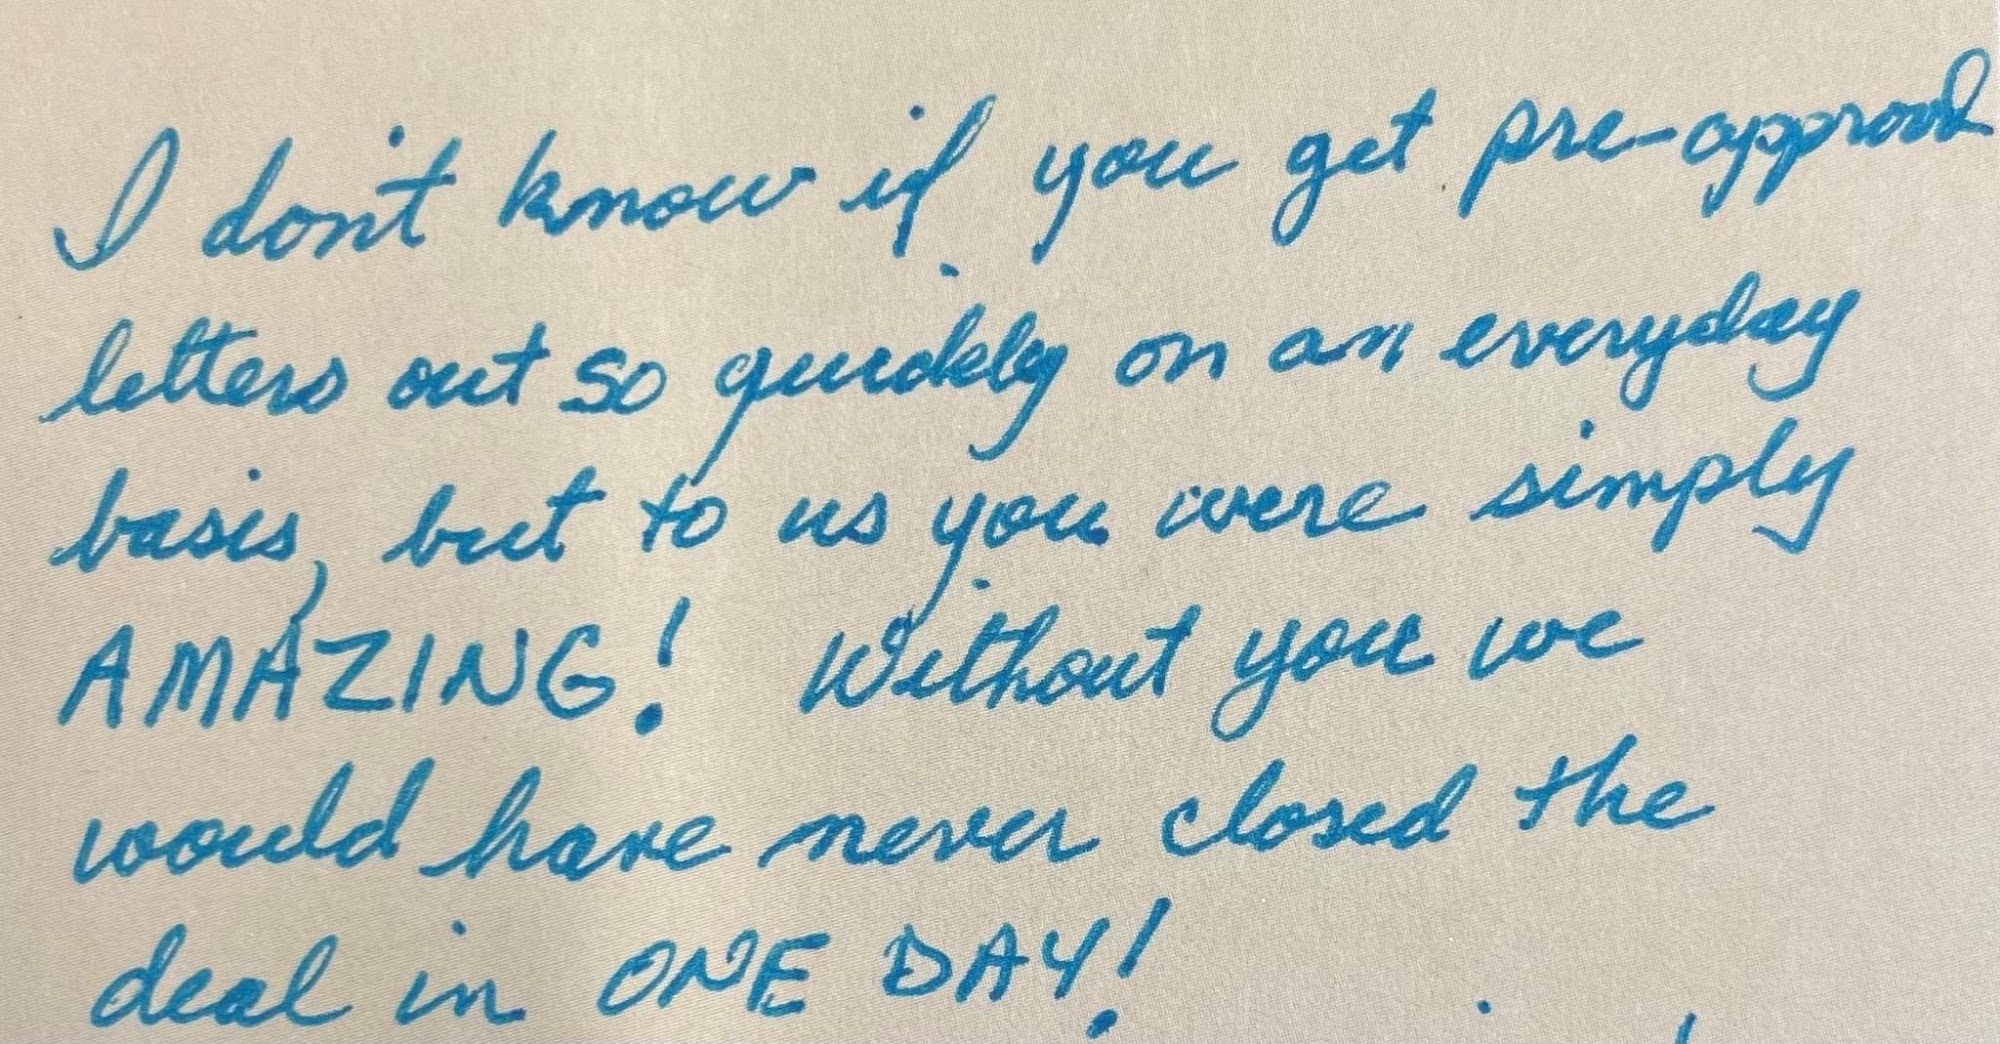 I don't know if you get pre-approval
letters out so quickly on an everyday
basis, but to us you were simply
AMAZING! Without you we
would have never closed the
deal in ONE DAY!